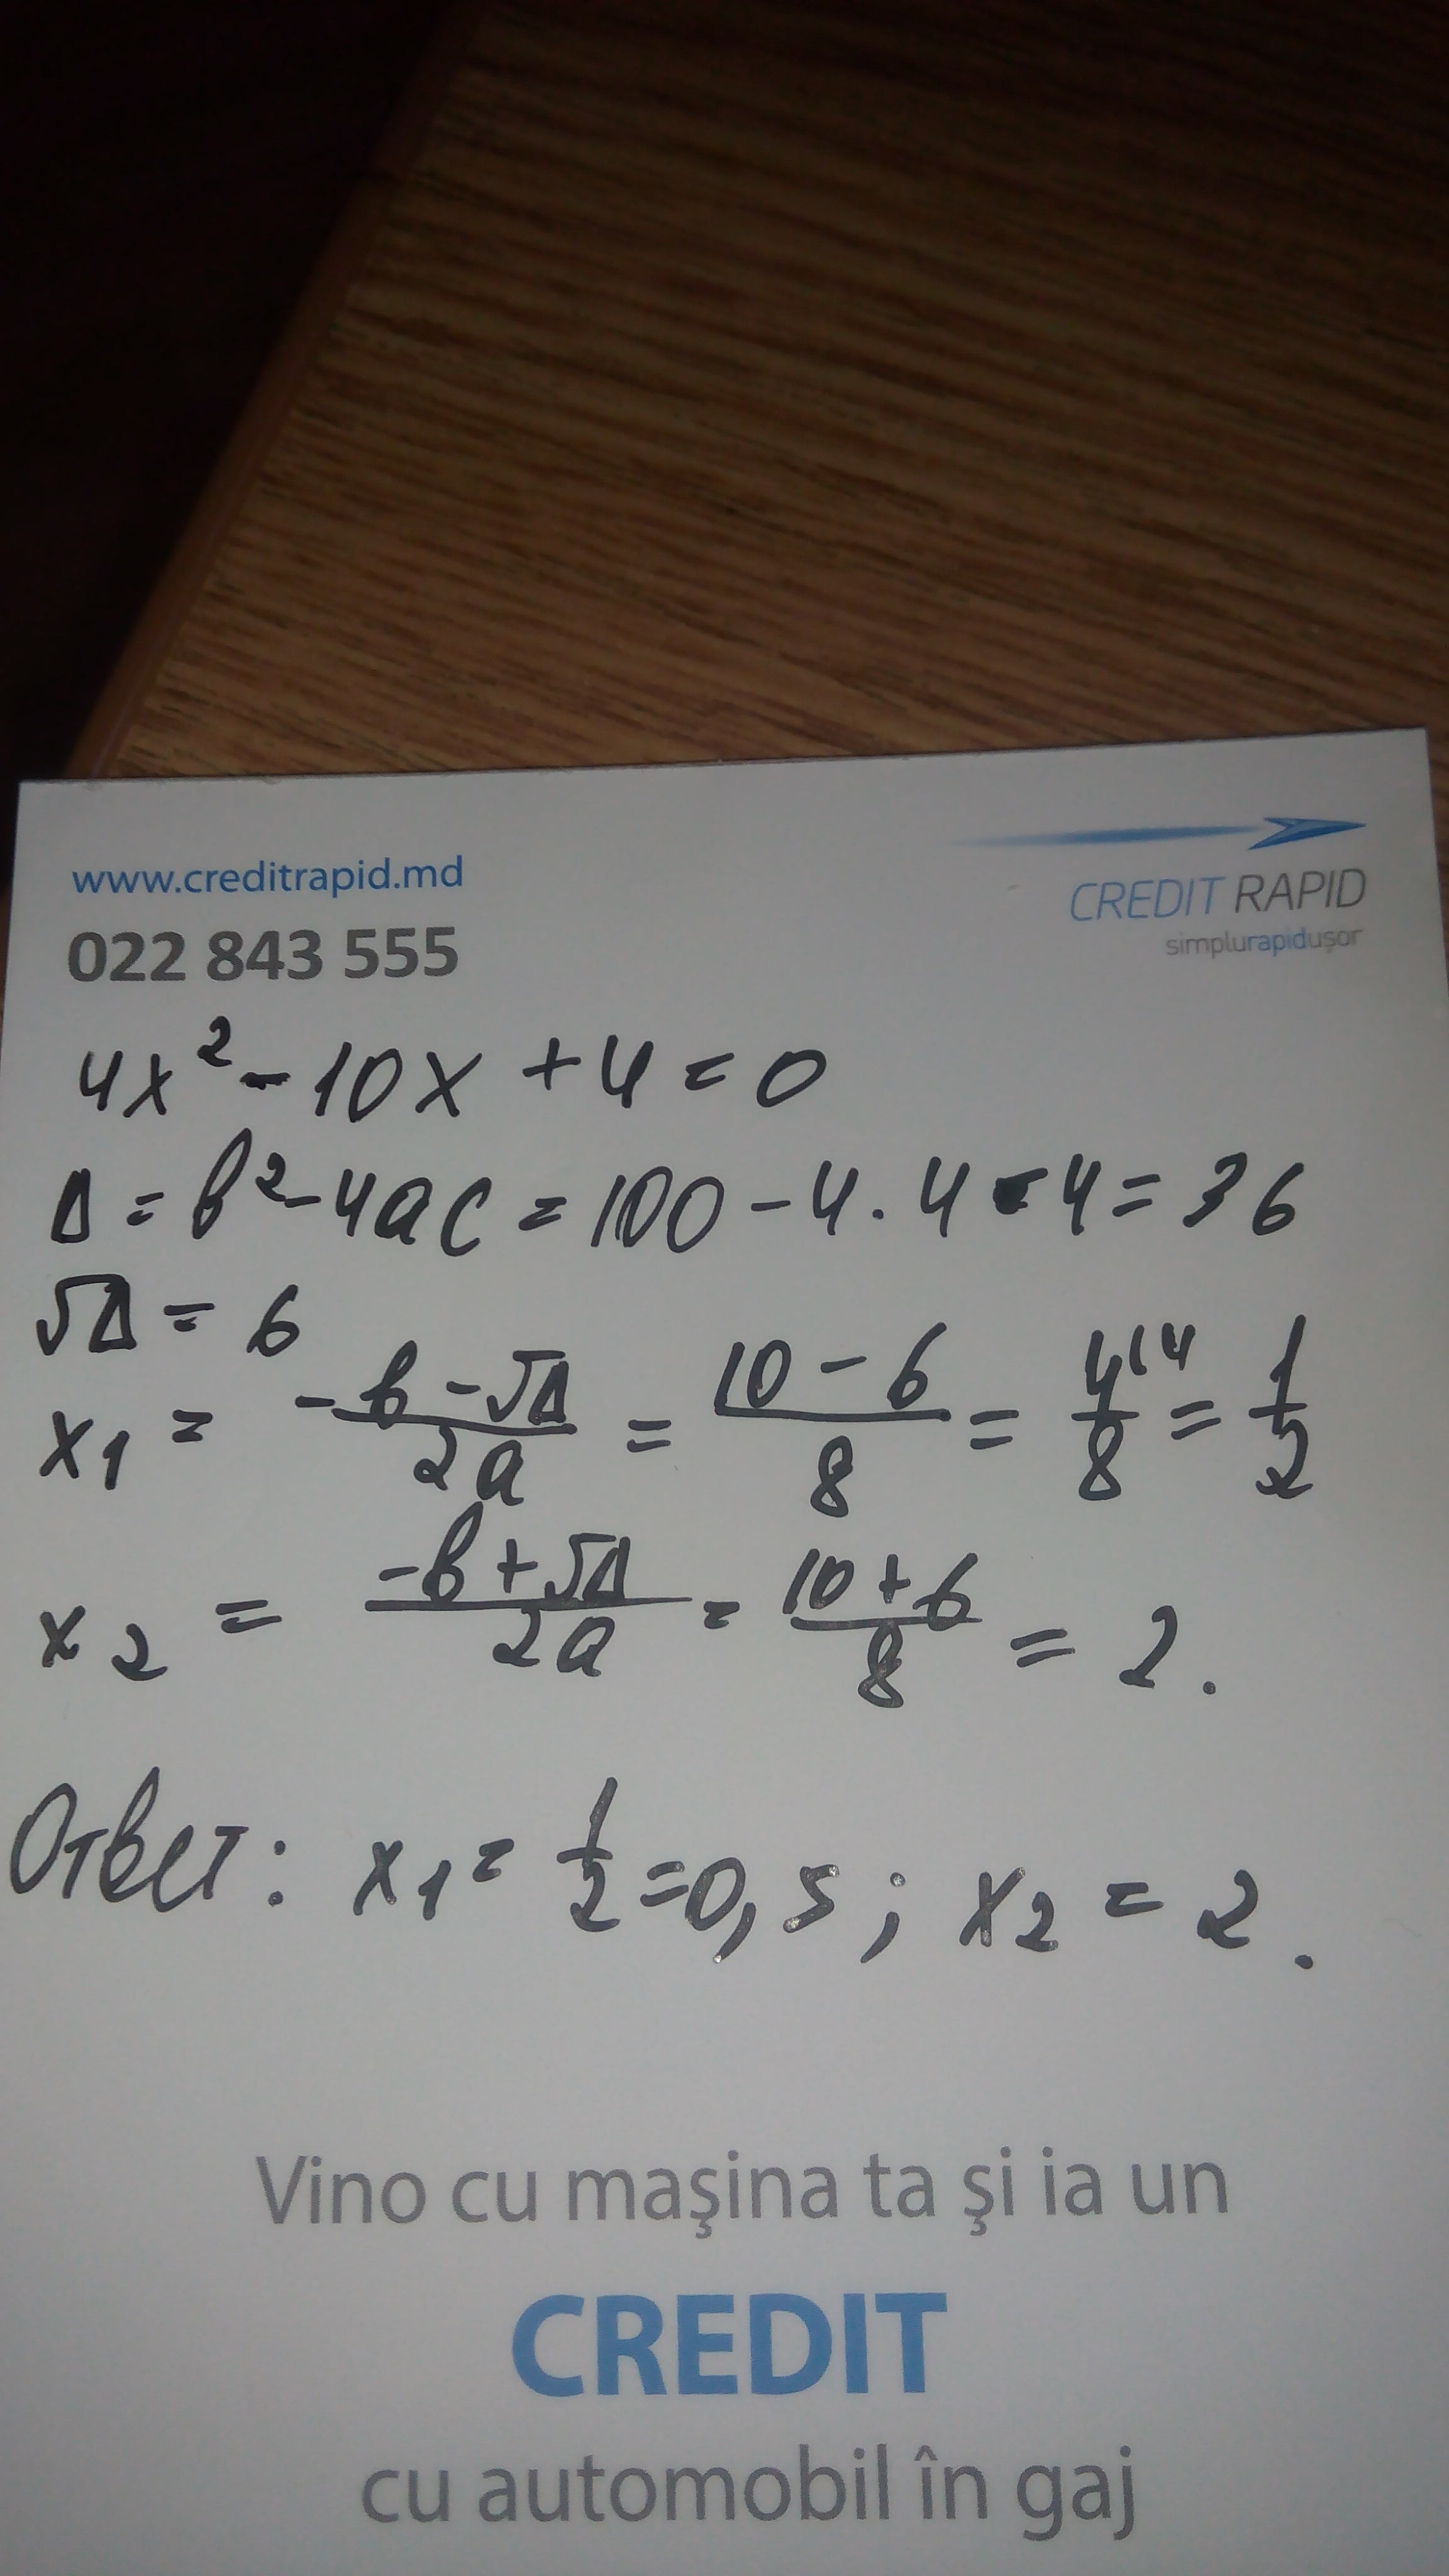 www.creditrapid.md
022 843 555
CREDIT RAPID
simplurapiduşor
4x² - 10x + 4 = 0
Δ = b² - 4ac = 100 - 4 · 4 · 4 = 36
√Δ = 6
x₁ = (-b - √Δ)/2a = (10 - 6)/8 = 4⁽⁴/8 = 1/2
x₂ = (-b + √Δ)/2a = (10 + 6)/8 = 2.
Ответ: x₁ = 1/2 = 0,5 ; x₂ = 2.
Vino cu maşina ta şi ia un
CREDIT
cu automobil în gaj